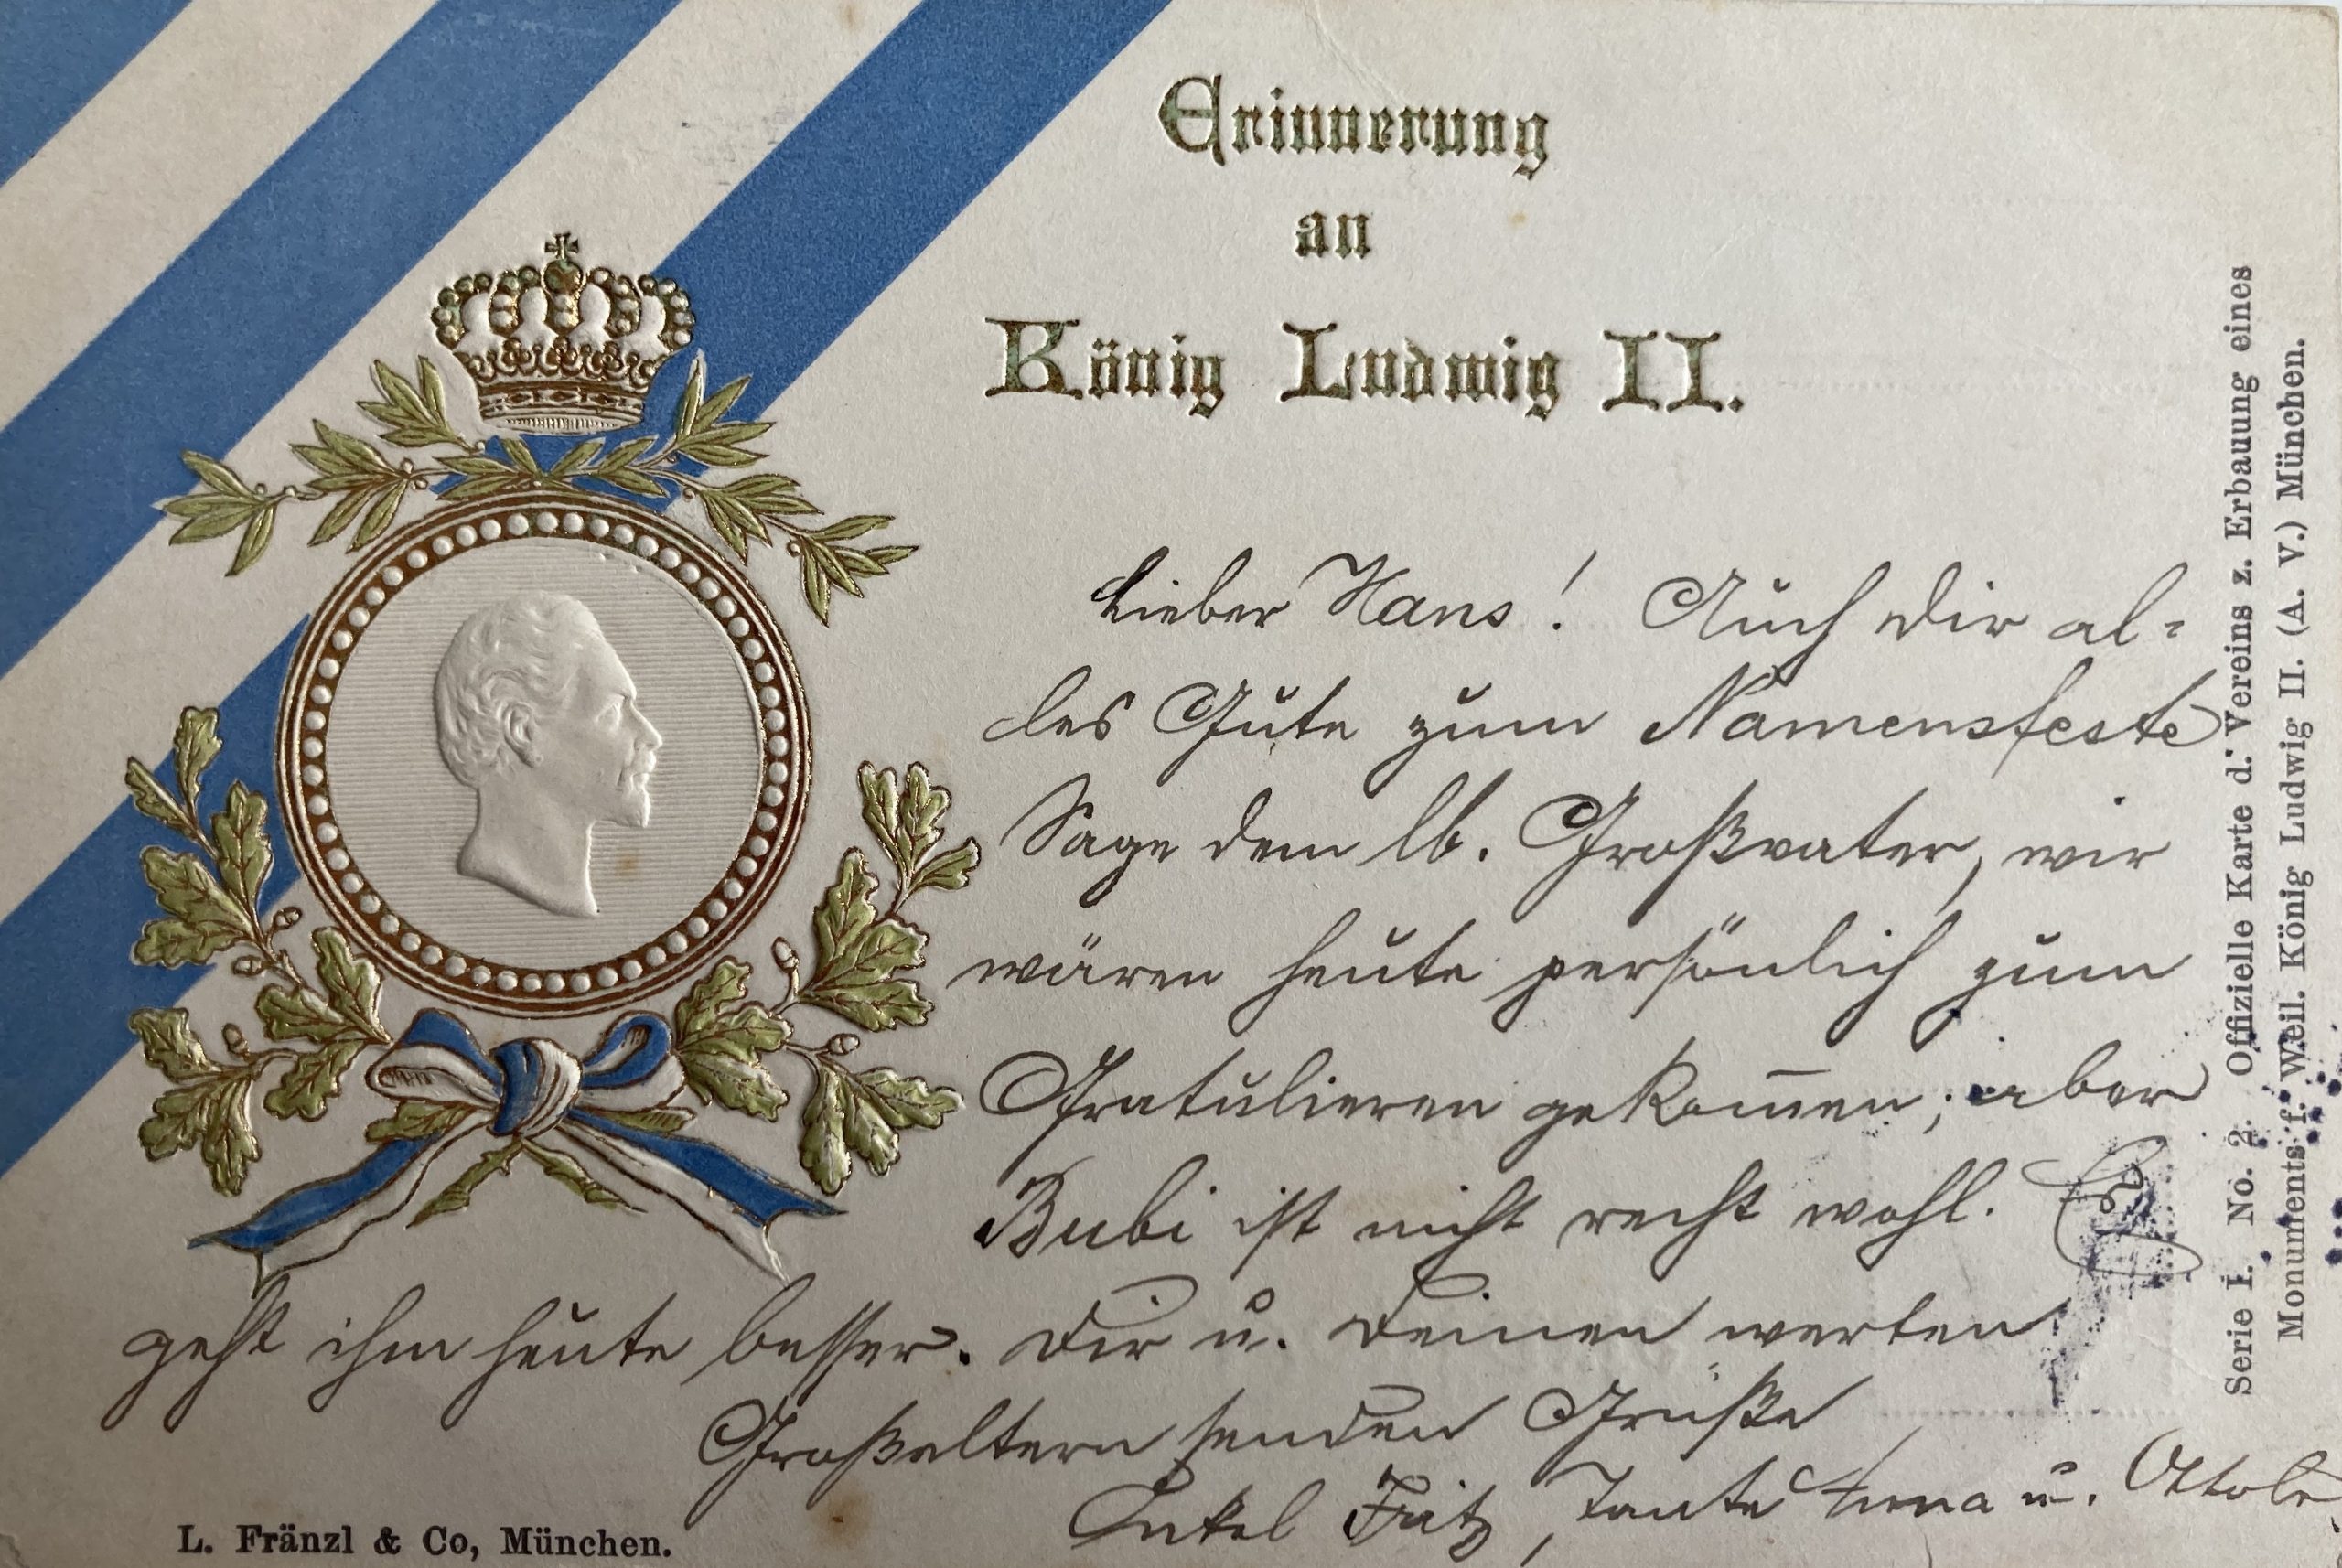 Erinnerung
an
König Ludwig II.
Lieber Hans! Auch Dir al-
les Gute zum Namensfeste
Sage dem lb. Großvater, wir
wären heute persönlich zum
Gratulieren gekom̅en; aber
Bubi ist nicht recht wohl. Es
geht ihm heute besser. Dir u. Deinen werten
Großeltern senden Grüße
Onkel Fritz, Tante Anna u.
L. Fränzl & Co, München.
Serie I. No. 2. Offizielle Karte d. Vereins z. Erbauung eines
Monuments f. Weil. König Ludwig II. (A. V.) München.